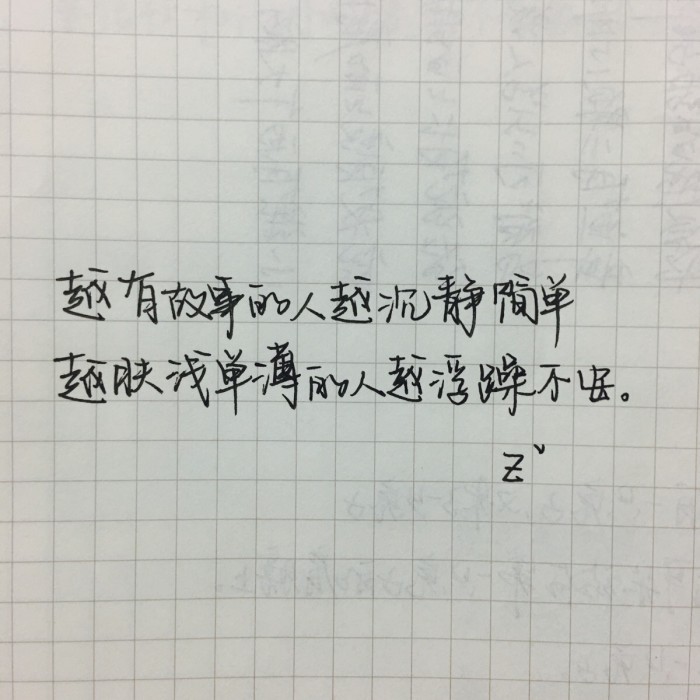 越有故事的人越沉静简单
越肤浅单薄的人越浮躁不安。
Z、